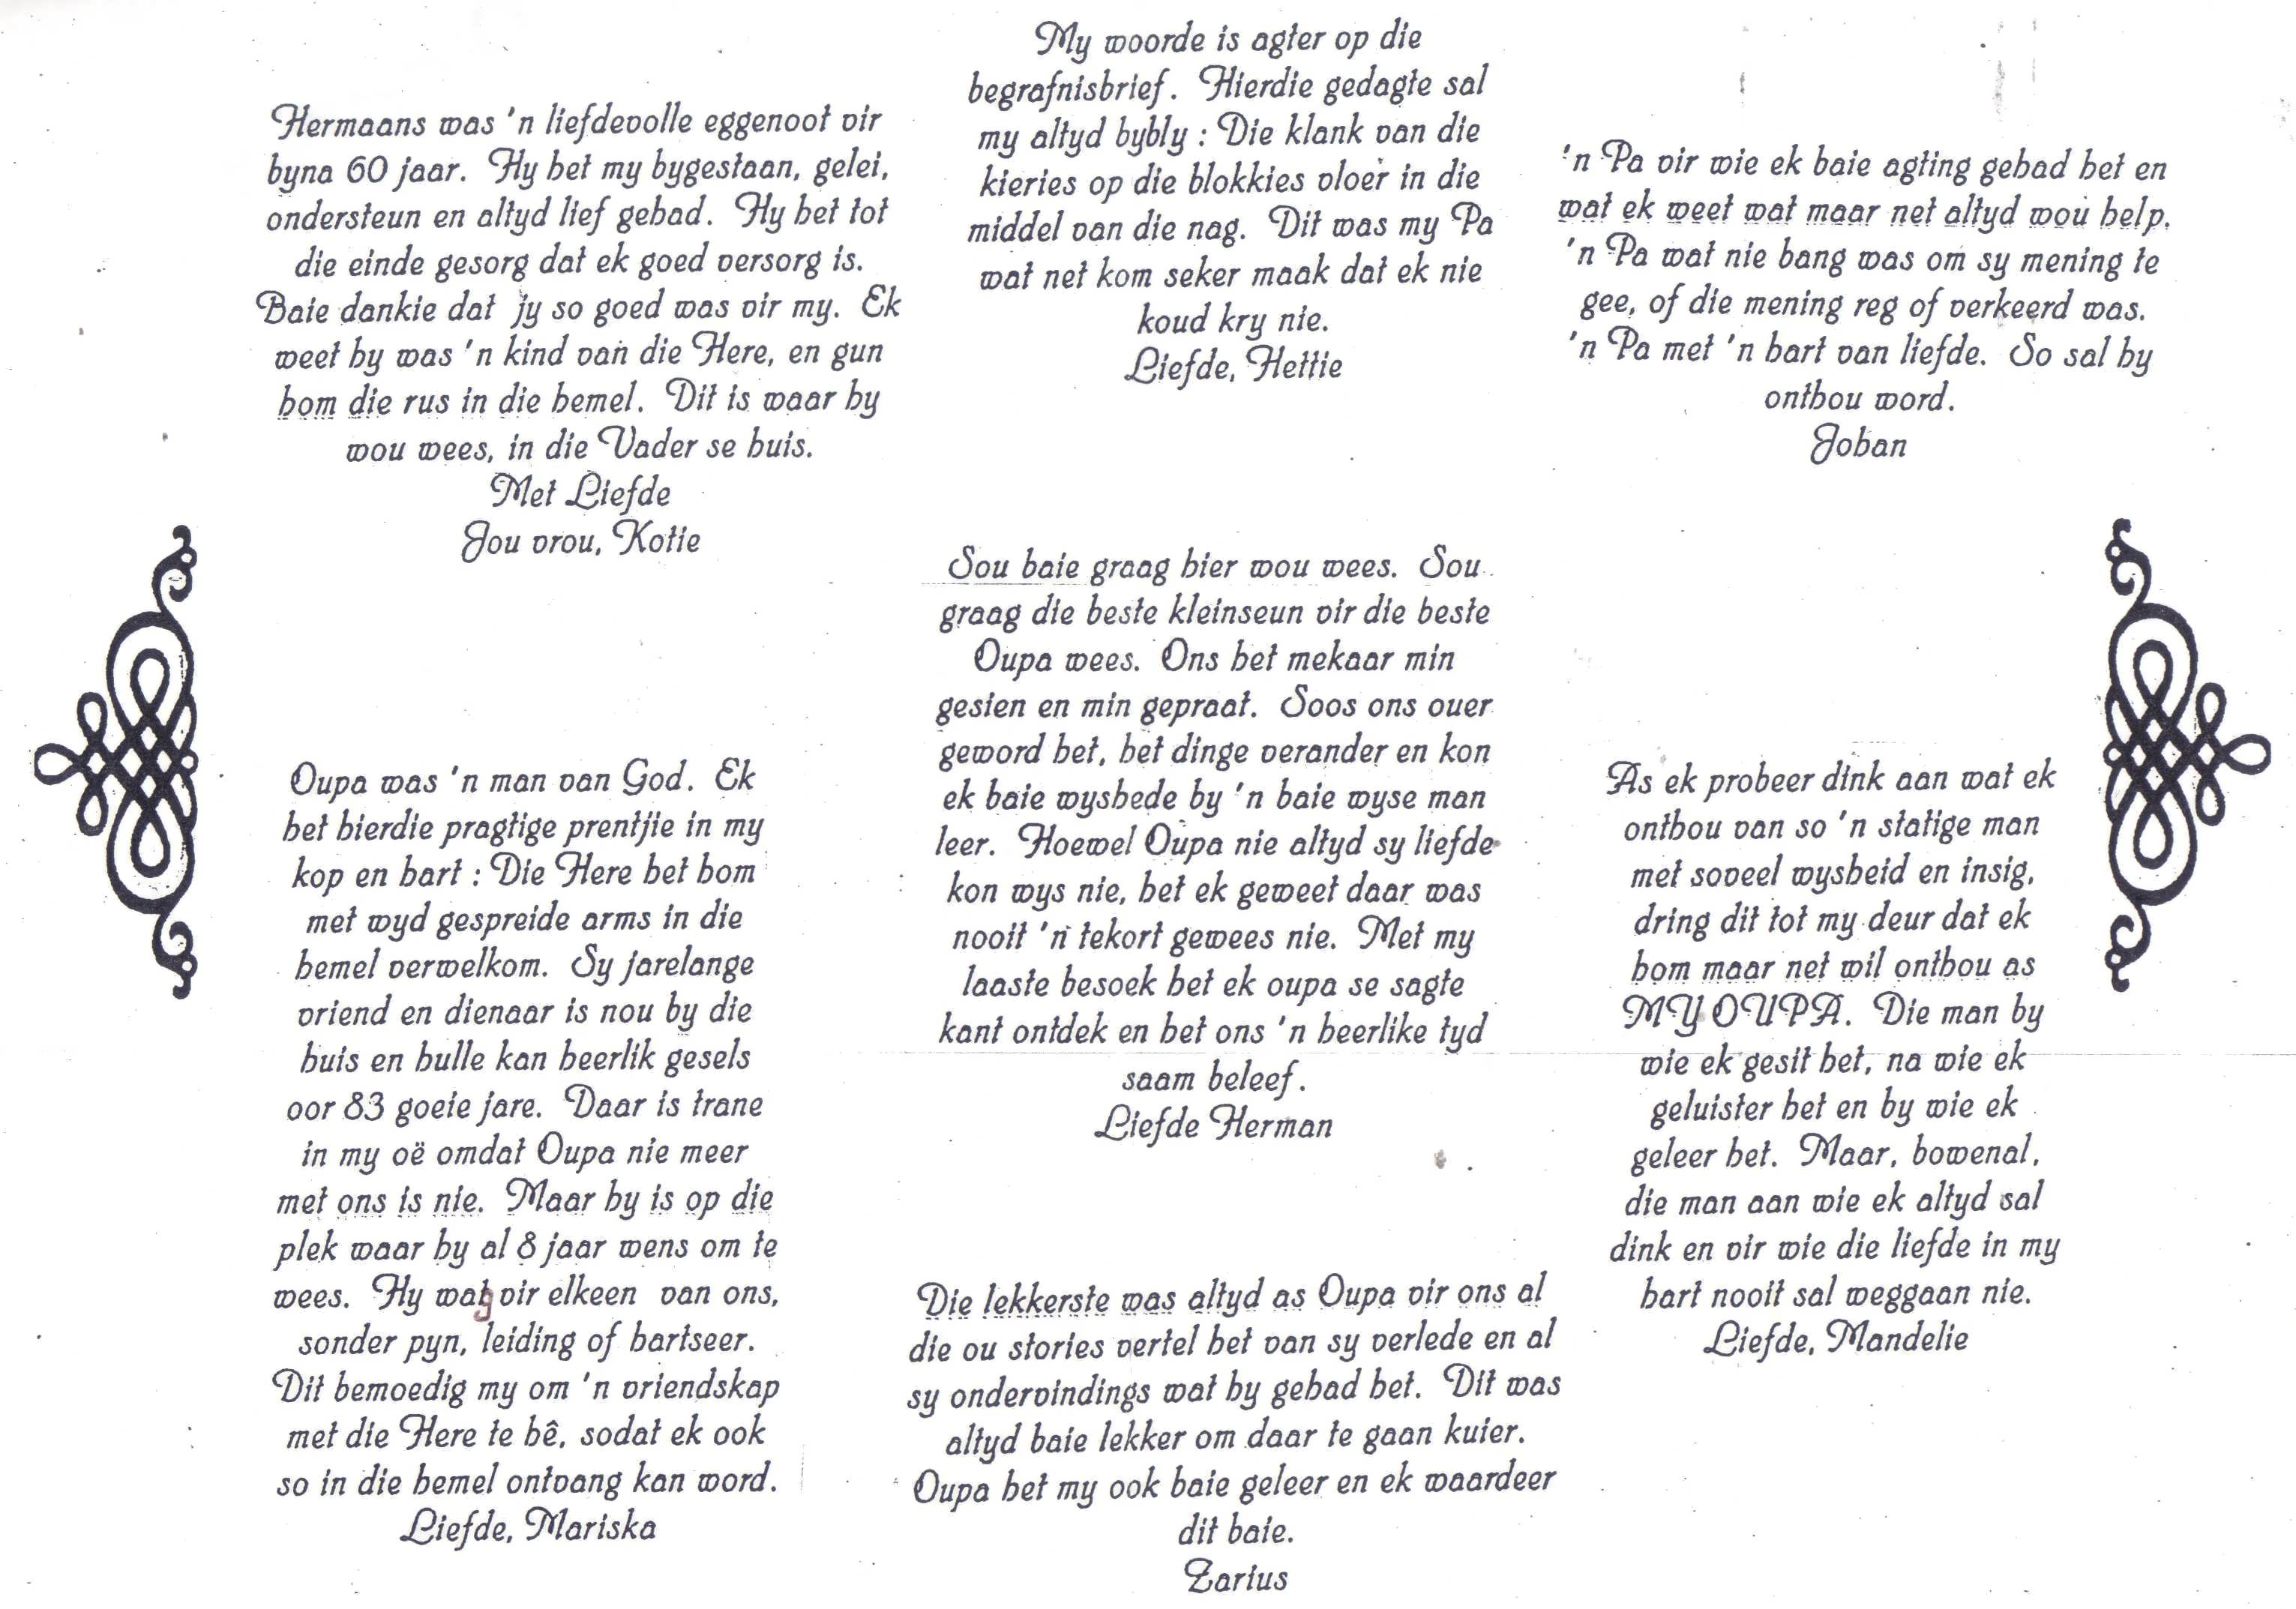 Hermaans was 'n liefdevolle eggenoot vir
byna 60 jaar. Hy het my bygestaan, gelei,
ondersteun en altyd lief gehad. Hy het tot
die einde gesorg dat ek goed versorg is.
Baie dankie dat jy so goed was vir my. Ek
weet hy was 'n kind van die Here, en gun
hom die rus in die hemel. Dit is waar hy
wou wees, in die Vader se huis.
Met Liefde
Jou vrou, Kotie
Oupa was 'n man van God. Ek
het hierdie pragtige prentjie in my
kop en hart : Die Here het hom
met wyd gespreide arms in die
hemel verwelkom. Sy jarelange
vriend en dienaar is nou by die
huis en hulle kan heerlik gesels
oor 83 goeie jare. Daar is trane
in my oë omdat Oupa nie meer
met ons is nie. Maar hy is op die
plek waar hy al 8 jaar wens om te
wees. Hy wag vir elkeen van ons,
sonder pyn, leiding of hartseer.
Dit bemoedig my om 'n vriendskap
met die Here te hê, sodat ek ook
so in die hemel ontvang kan word.
Liefde, Mariska
My woorde is agter op die
begrafnisbrief. Hierdie gedagte sal
my altyd bybly : Die klank van die
kieries op die blokkies vloer in die
middel van die nag. Dit was my Pa
wat net kom seker maak dat ek nie
koud kry nie.
Liefde, Hettie
Sou baie graag hier wou wees. Sou
graag die beste kleinseun vir die beste
Oupa wees. Ons het mekaar min
gesien en min gepraat. Soos ons ouer
geword het, het dinge verander en kon
ek baie wyshede by 'n baie wyse man
leer. Hoewel Oupa nie altyd sy liefde
kon wys nie, het ek geweet daar was
nooit 'n tekort gewees nie. Met my
laaste besoek het ek oupa se sagte
kant ontdek en het ons 'n heerlike tyd
saam beleef.
Liefde Herman
Die lekkerste was altyd as Oupa vir ons al
die ou stories vertel het van sy verlede en al
sy ondervindings wat hy gehad het. Dit was
altyd baie lekker om daar te gaan kuier.
Oupa het my ook baie geleer en ek waardeer
dit baie.
Zarius
'n Pa vir wie ek baie agting gehad het en
wat ek weet wat maar net altyd wou help.
'n Pa wat nie bang was om sy mening te
gee, of die mening reg of verkeerd was.
'n Pa met 'n hart van liefde. So sal hy
onthou word.
Johan
As ek probeer dink aan wat ek
onthou van so 'n statige man
met soveel wysheid en insig,
dring dit tot my deur dat ek
hom maar net wil onthou as
MY OUPA. Die man by
wie ek gesit het, na wie ek
geluister het en by wie ek
geleer het. Maar, bowenal,
die man aan wie ek altyd sal
dink en vir wie die liefde in my
hart nooit sal weggaan nie.
Liefde, Mandelie